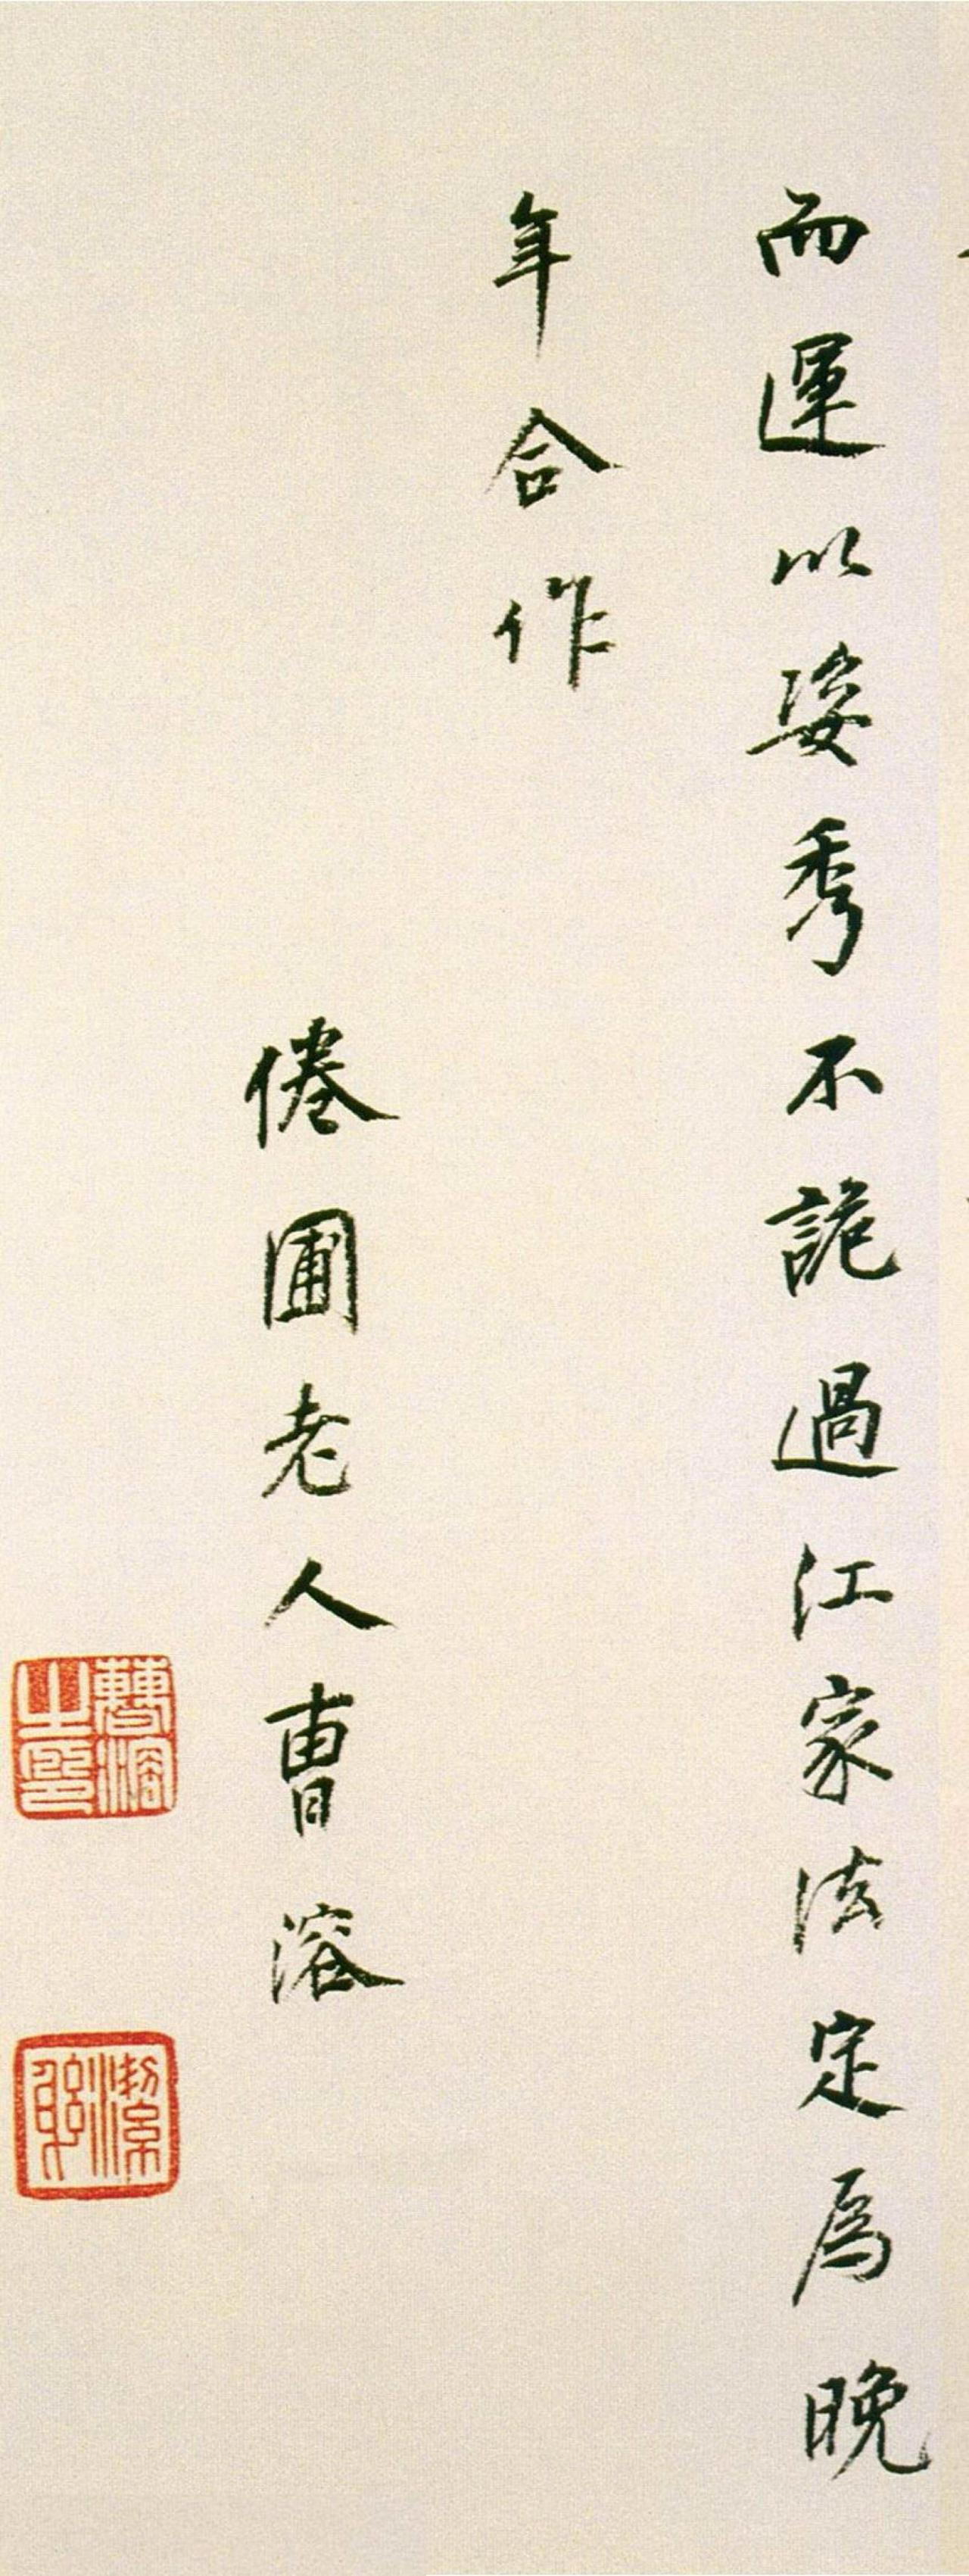 而運以姿秀不詭過江家法定為晚
年合作
倦圃老人曹溶
曹溶之印
潔躬